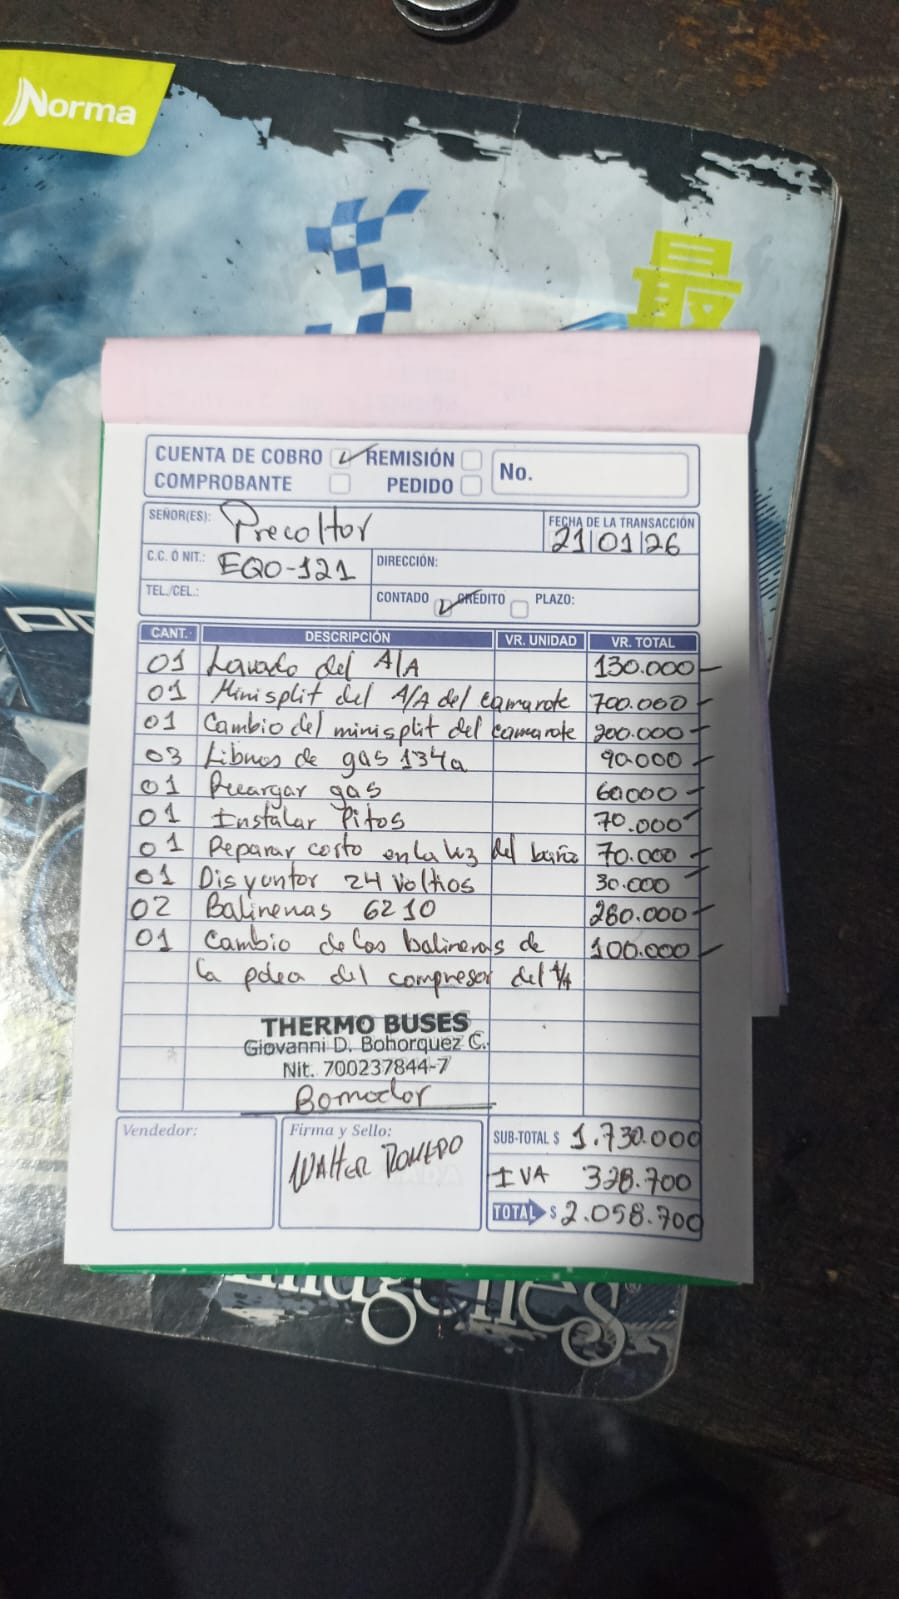 Norma
最
CUENTA DE COBRO REMISIÓN No.
COMPROBANTE PEDIDO
SEÑOR(ES): Precoltor
FECHA DE LA TRANSACCIÓN
21|01|26
C.C. Ó NIT.: EQO-121 DIRECCIÓN:
TEL./CEL.: CONTADO CRÉDITO PLAZO:
CANT. DESCRIPCIÓN VR. UNIDAD VR. TOTAL
01 Lavado del A/A 130.000
01 Minisplit del A/A del camarote 700.000
01 Cambio del minisplit del camarote 200.000
03 Libras de gas 134a 90.000
01 Recargar gas 60000
01 Instalar Pitos 70.000
01 Reparar corto en la luz del baño 70.000
01 Disyuntor 24 Voltios 30.000
02 Balineras 6210 280.000
01 Cambio de las balineras de 100.000
la polea del compresor del A/A
THERMO BUSES
Giovanni D. Bohorquez C.
Nit. 700237844-7
Vendedor: Firma y Sello: SUB-TOTAL $ 1.730.000
WALTER ROMERO
IVA 328.700
TOTAL $ 2.058.700
Imágenes